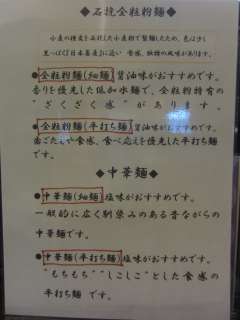 ◆石挽全粒粉麺◆
小麦の穂皮を石挽した小麦粉で製麺したため、色は少し
黒っぽく『日本蕎麦』に近い 香り、独特の風味があります。
●全粒粉麺(細麺) 醤油味がおすすめです。
香りを優先した低加水麺で、全粒粉特有の
"ざくざく感"があります。
●全粒粉麺(平打ち麺) 醤油味がおすすめです。
歯ごたえや食感、食べ応えを優先した平打ち麺
です。
◆中華麺◆
●中華麺(細麺) 塩味がおすすめです。
一般的に広く馴染みのある昔ながらの
中華麺です。
●中華麺(平打ち麺) 塩味がおすすめです。
"もちもち""しこしこ"とした食感の
平打ち麺です。